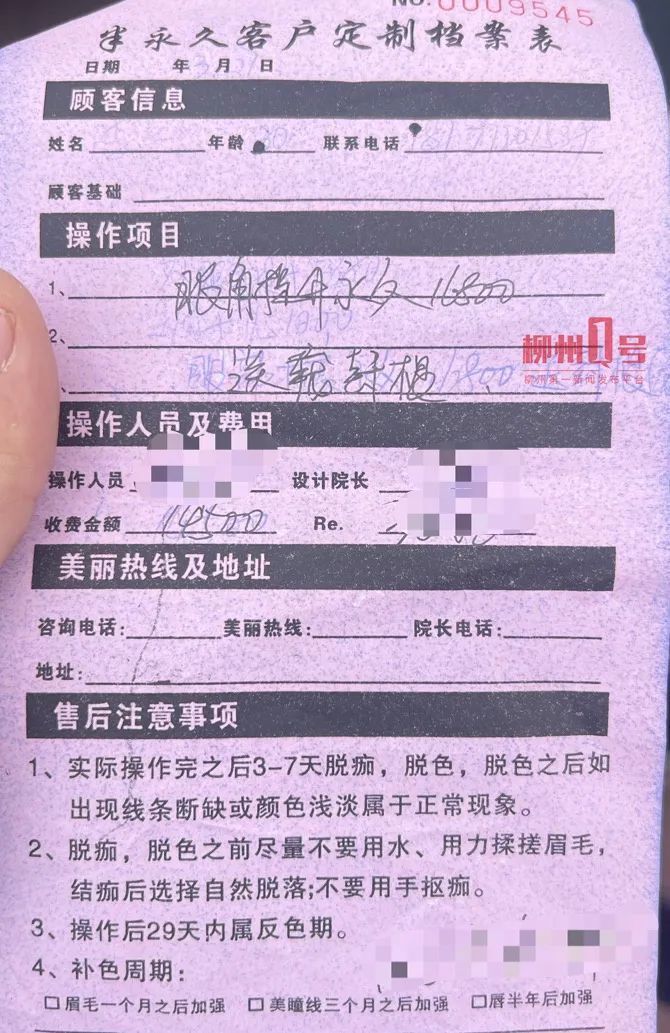 NO.0009545
半永久客户定制档案表
日期 年 月 日
顾客信息
姓名 年龄 联系电话
顾客基础
操作项目
1、 眼角提升永久 16800
2、
柳州1号
柳州第一新闻发布平台
操作人员及费用
操作人员 设计院长
收费金额 14500 Re.
美丽热线及地址
咨询电话: 美丽热线: 院长电话:
地址:
售后注意事项
1、实际操作完之后3-7天脱痂，脱色，脱色之后如
出现线条断缺或颜色浅淡属于正常现象。
2、脱痂，脱色之前尽量不要用水、用力揉搓眉毛，
结痂后选择自然脱落;不要用手抠痂。
3、操作后29天内属反色期。
4、补色周期:
□眉毛一个月之后加强 □美瞳线三个月之后加强 □唇半年后加强